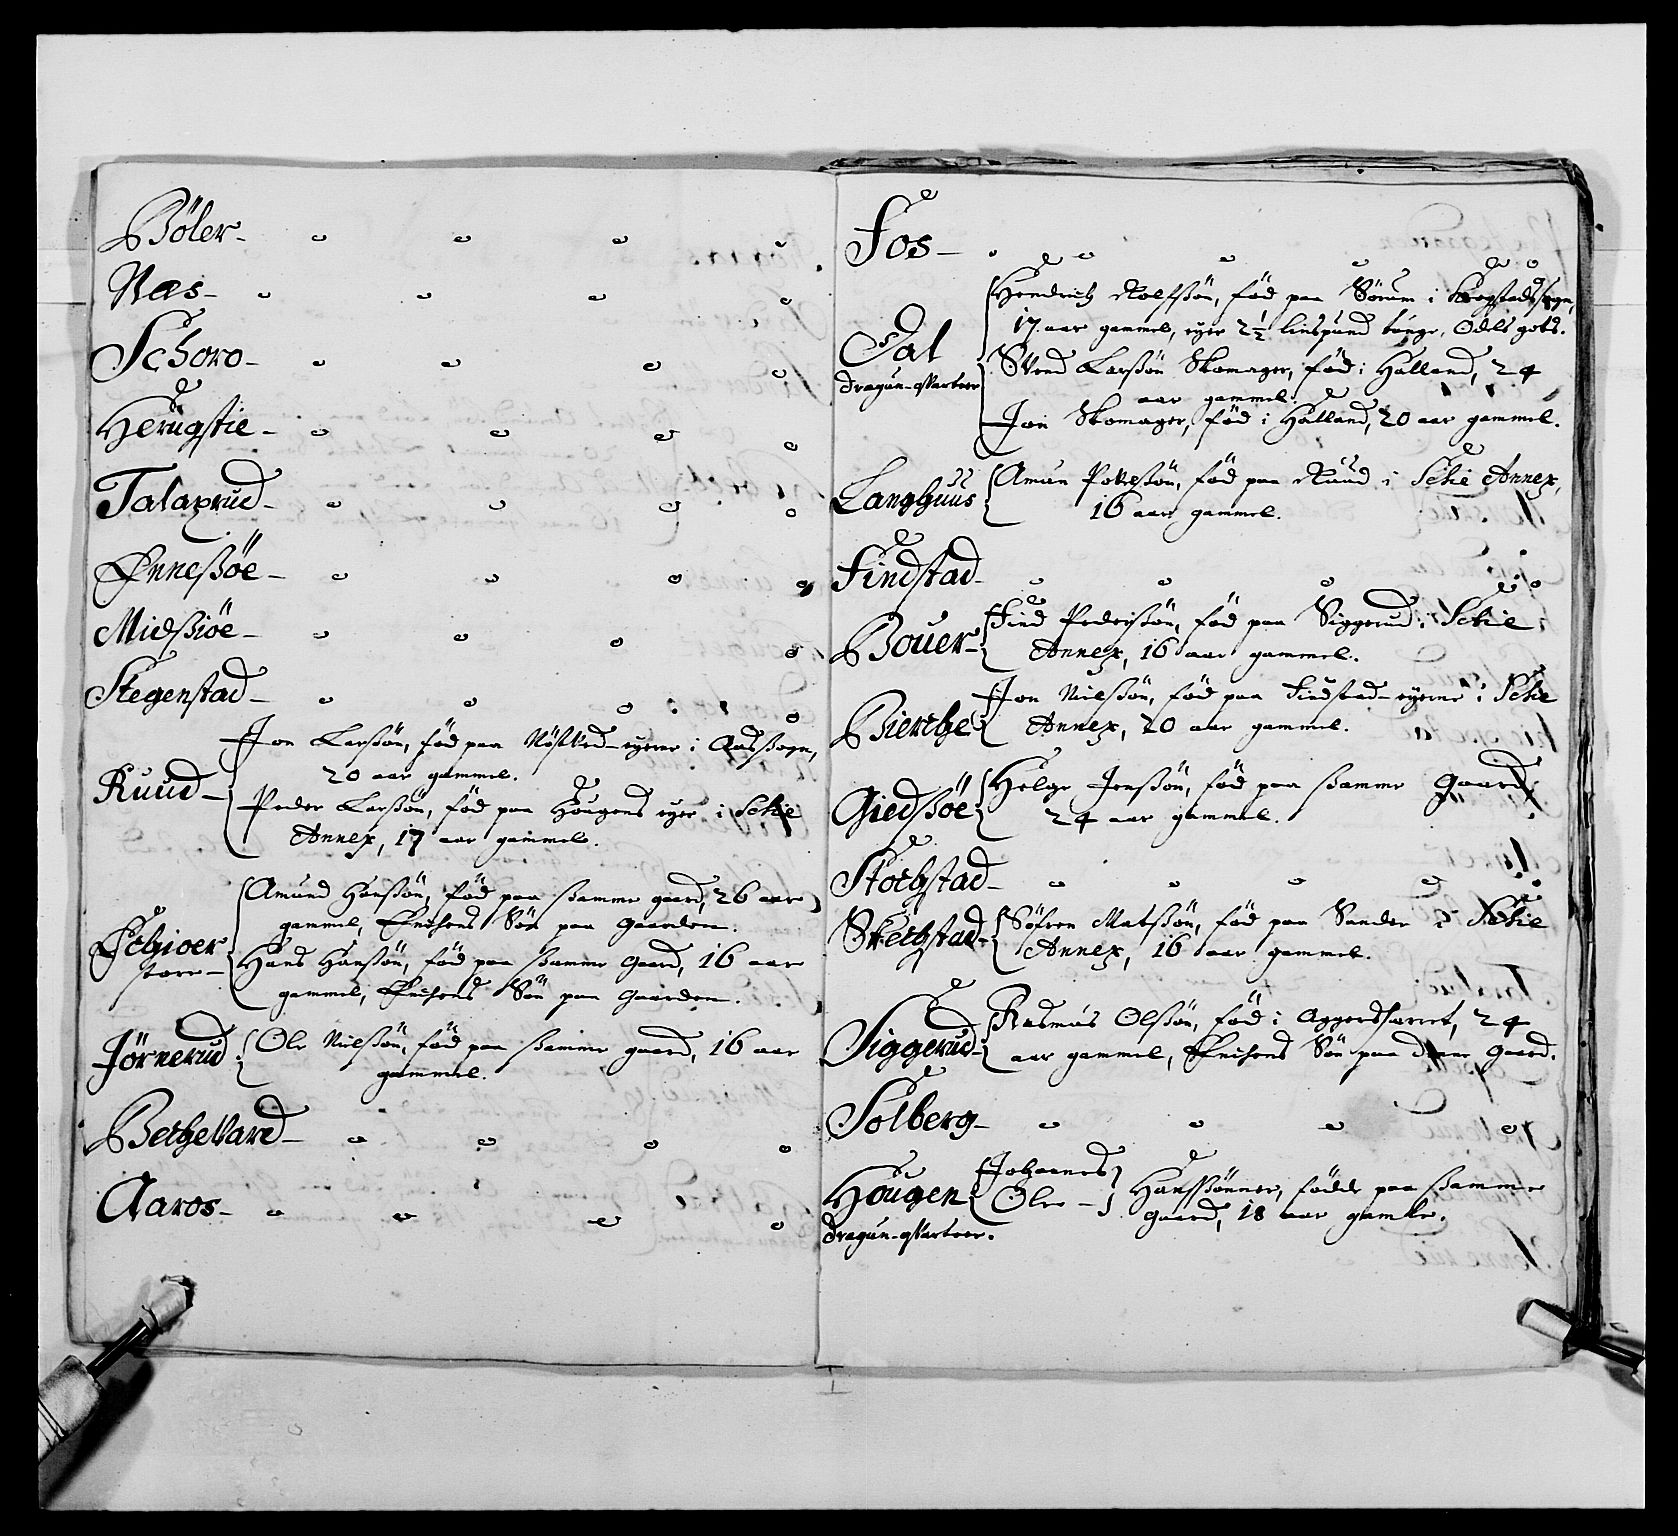 Böler-
Næs-
Schoro-
Herugstie-
Talaxrud-
Enneßöe-
Midsiöe-
Stegenstad-
Jon Larßön, föd paa ‑eyerne i Aassogn,
20 aar gammel.
Ruud-
Peder Larßön, föd paa Hougens eyer i Schie
Annex, 17 aar gammel.
Amund Hanßön, föd paa samme gaard, 26 aar
gammel, Enchens Sön paa Gaarden.
Echioer
store-
Hans Hanßön, föd paa samme Gaard, 16 aar
gammel, Enchens Sön paa Gaarden.
Jörnerud
Ole Nielßön, föd paa samme gaard, 16 aar
gammel.
BecheVard-
Aaros-
Fos-
Hendrich Rolfßön, föd paa Sörum i Krogstads sogn,
17 aar gammel, eyer 2½ lispund tunge, Odels gods.
Dal
dragun-qVarteer
Svend Larßön Skomager, föd i Halland, 24
aar gammel.
Jon Skomager, föd i Halland, 20 aar gammel.
Langhuus
Amun Povelßön, föd paa Ruud i Schie Annex,
16 aar gammel.
Findstad-
Bouer-
Find Pederßön, föd paa Siggerud i Schie
Annex, 16 aar gammel.
Bierche
Jon Nielßön, föd paa Findstad-eyerne i Schie
Annex, 20 aar gammel.
Giedßöe
Helge Jenßön, föd paa samme Gaard,
24 aar gammel.
Stochstad-
Skechstad-
Söfren Matßön, föd paa Sander i Schie
Annex, 16 aar gammel.
Siggerud-
Rasmus Olßön, föd i Aggershærret, 24
aar gammel, Enchens Sön paa denne Gaard.
Solberg-
Hougen
dragun-qVarteer.
Johannes
Ole -
Hansßönner, födde paa samme
Gaard, 18 aar gamle.